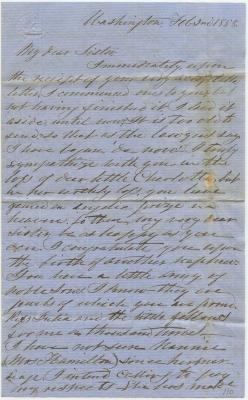 Washington Feb 2nd 1858.
My dear Sister
Immediately upon
the receipt of your long and
letter, I commenced one to you but
not having finished it I laid it
aside until now. It is too old to
send, so that as the lawyers say
I have begun de novo. I truly
sympathize with you in the
loss of dear little Charlotte, but
in her worldly loss, you have
gained an angelic prize in
Heaven. So then my very dear
Sister, be as happy as you
can. I congratulate you upon
the birth of another nephew.
You have a little army of
noble sons. I know they are
jewels of which you are proud.
Kiss Julia and the little fellows
for me a thousand times.
I have not seen Nannie
(Mrs Hamilton) since
I intend calling to pay
my respects. She has made